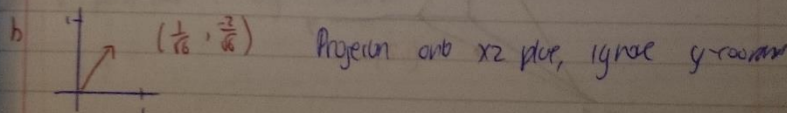 b (1/√6, -2/√6) Projecion onto xz plane, ignore y-coordin